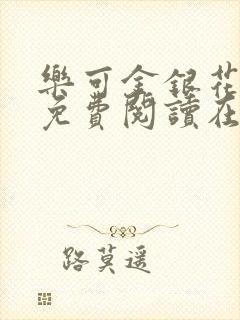 樂可金銀花
免費閱讀在
路莫遥